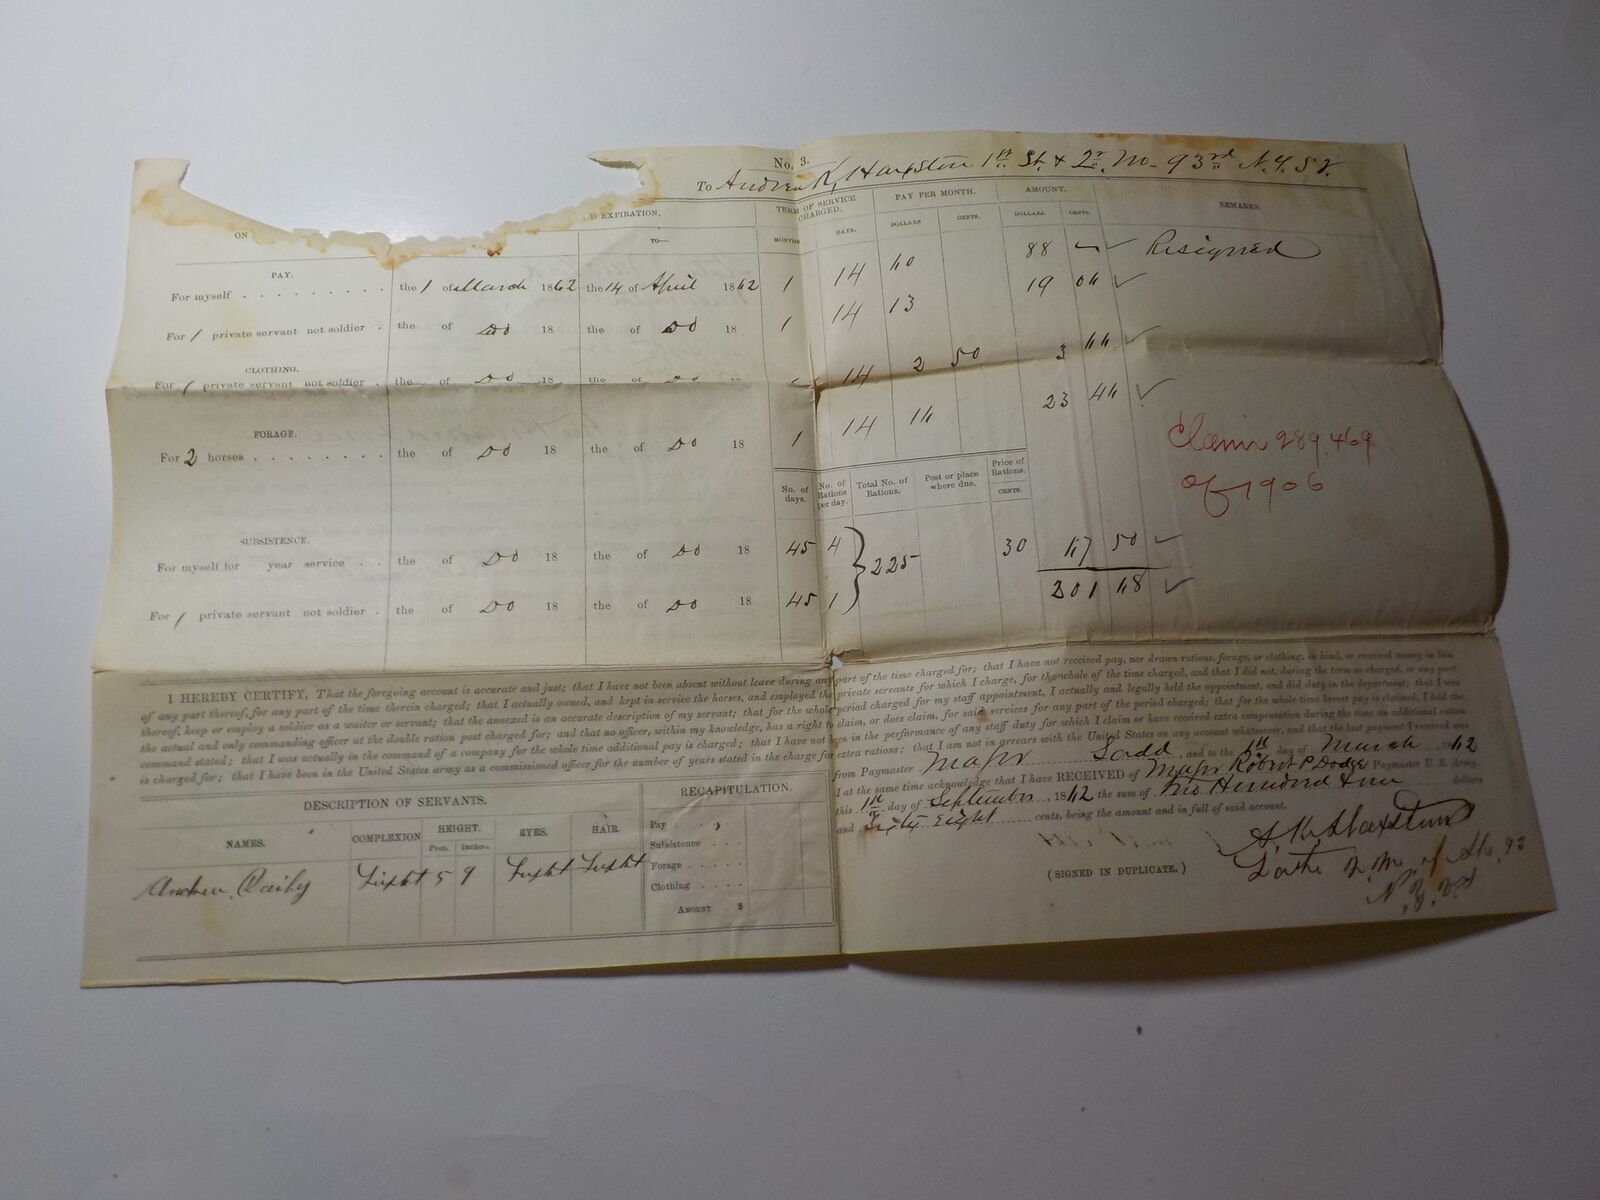 No. 3.
To Andrew K. Haxstun 1st Lt. & Qr. M. 93rd N.Y.S.V.
ON
D EXPIRATION.
TERM OF SERVICE CHARGED.
PAY PER MONTH.
AMOUNT.
REMARKS
TO—
MONTHS
DAYS.
DOLLARS
CENTS.
DOLLARS
CENTS.
PAY.
For myself . . . . . . . . . . the 1 of March 1862 the 14 of April 1862 1 14 60 88 — Resigned
For 1 private servant not soldier . the of Do 18 the of Do 18 1 14 13 19 06
CLOTHING.
For 1 private servant not soldier . the of Do 18 the of Do 14 2 50 3 66
FORAGE.
For 2 horses . . . . . . . . the of Do 18 the of Do 18 1 14 16 23 46
Claim 289,469
of 1906
No. of days.
No. of Rations per day.
Total No. of Rations.
Post or place where due.
Price of Rations.
CENTS.
SUBSISTENCE.
For myself for year service . . the of Do 18 the of Do 18 45 4 225 30 67 50
For 1 private servant not soldier . the of Do 18 the of Do 18 45 1 201 68
I HEREBY CERTIFY, That the foregoing account is accurate and just; that I have not been absent without leave during any part of the time charged for; that I have not received pay, nor drawn rations, forage, or clothing, in kind, or received money in lieu
of any part thereof, for any part of the time therein charged; that I actually owned, and kept in service the horses, and employed the private servants for which I charge, for the whole of the time charged, and that I did not, during the term so charged, or any part
thereof, keep or employ a soldier as a waiter or servant; that the annexed is an accurate description of my servant; that for the whole period charged for my staff appointment, I actually and legally held the appointment, and did duty in the department; that I was
the actual and only commanding officer at the double ration post charged for; and that no officer, within my knowledge, has a right to claim, or does claim, for said services for any part of the period charged; that for the whole time brevet pay is claimed, I had the
command stated; that I was actually in the command of a company for the whole time additional pay is charged; that I have not been in the performance of any staff duty for which I claim or have received extra compensation during the time an additional ration
is charged for; that I have been in the United States army as a commissioned officer for the number of years stated in the charge for extra rations; that I am not in arrears with the United States on any account whatsoever, and that the last payment I received was
from Paymaster Major Ladd , and to the day of March 62
I at the same time acknowledge that I have RECEIVED of Major Robert P. Dodge Paymaster U. S. Army,
this day of September , 1862 the sum of Two Hundred & one dollars
and Sixty eight cents, being the amount and in full of said account.
DESCRIPTION OF SERVANTS.
NAMES.
COMPLEXION
HEIGHT.
Feet.
Inches.
EYES.
HAIR.
Andrew Light 5 9 Light Light
RECAPITULATION.
Pay . . .
Subsistence . . .
Forage . . . . .
Clothing . . . .
AMOUNT $
(SIGNED IN DUPLICATE.)
A. K. Haxstun
Late Q. M. of the 93
N. Y. Vol